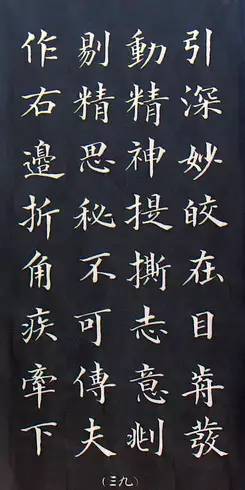 引深妙皎在目歬發
動精神提撕志意𠛪
剔精思秘不可傳夫
作右邊折角疾牽下
(三九)